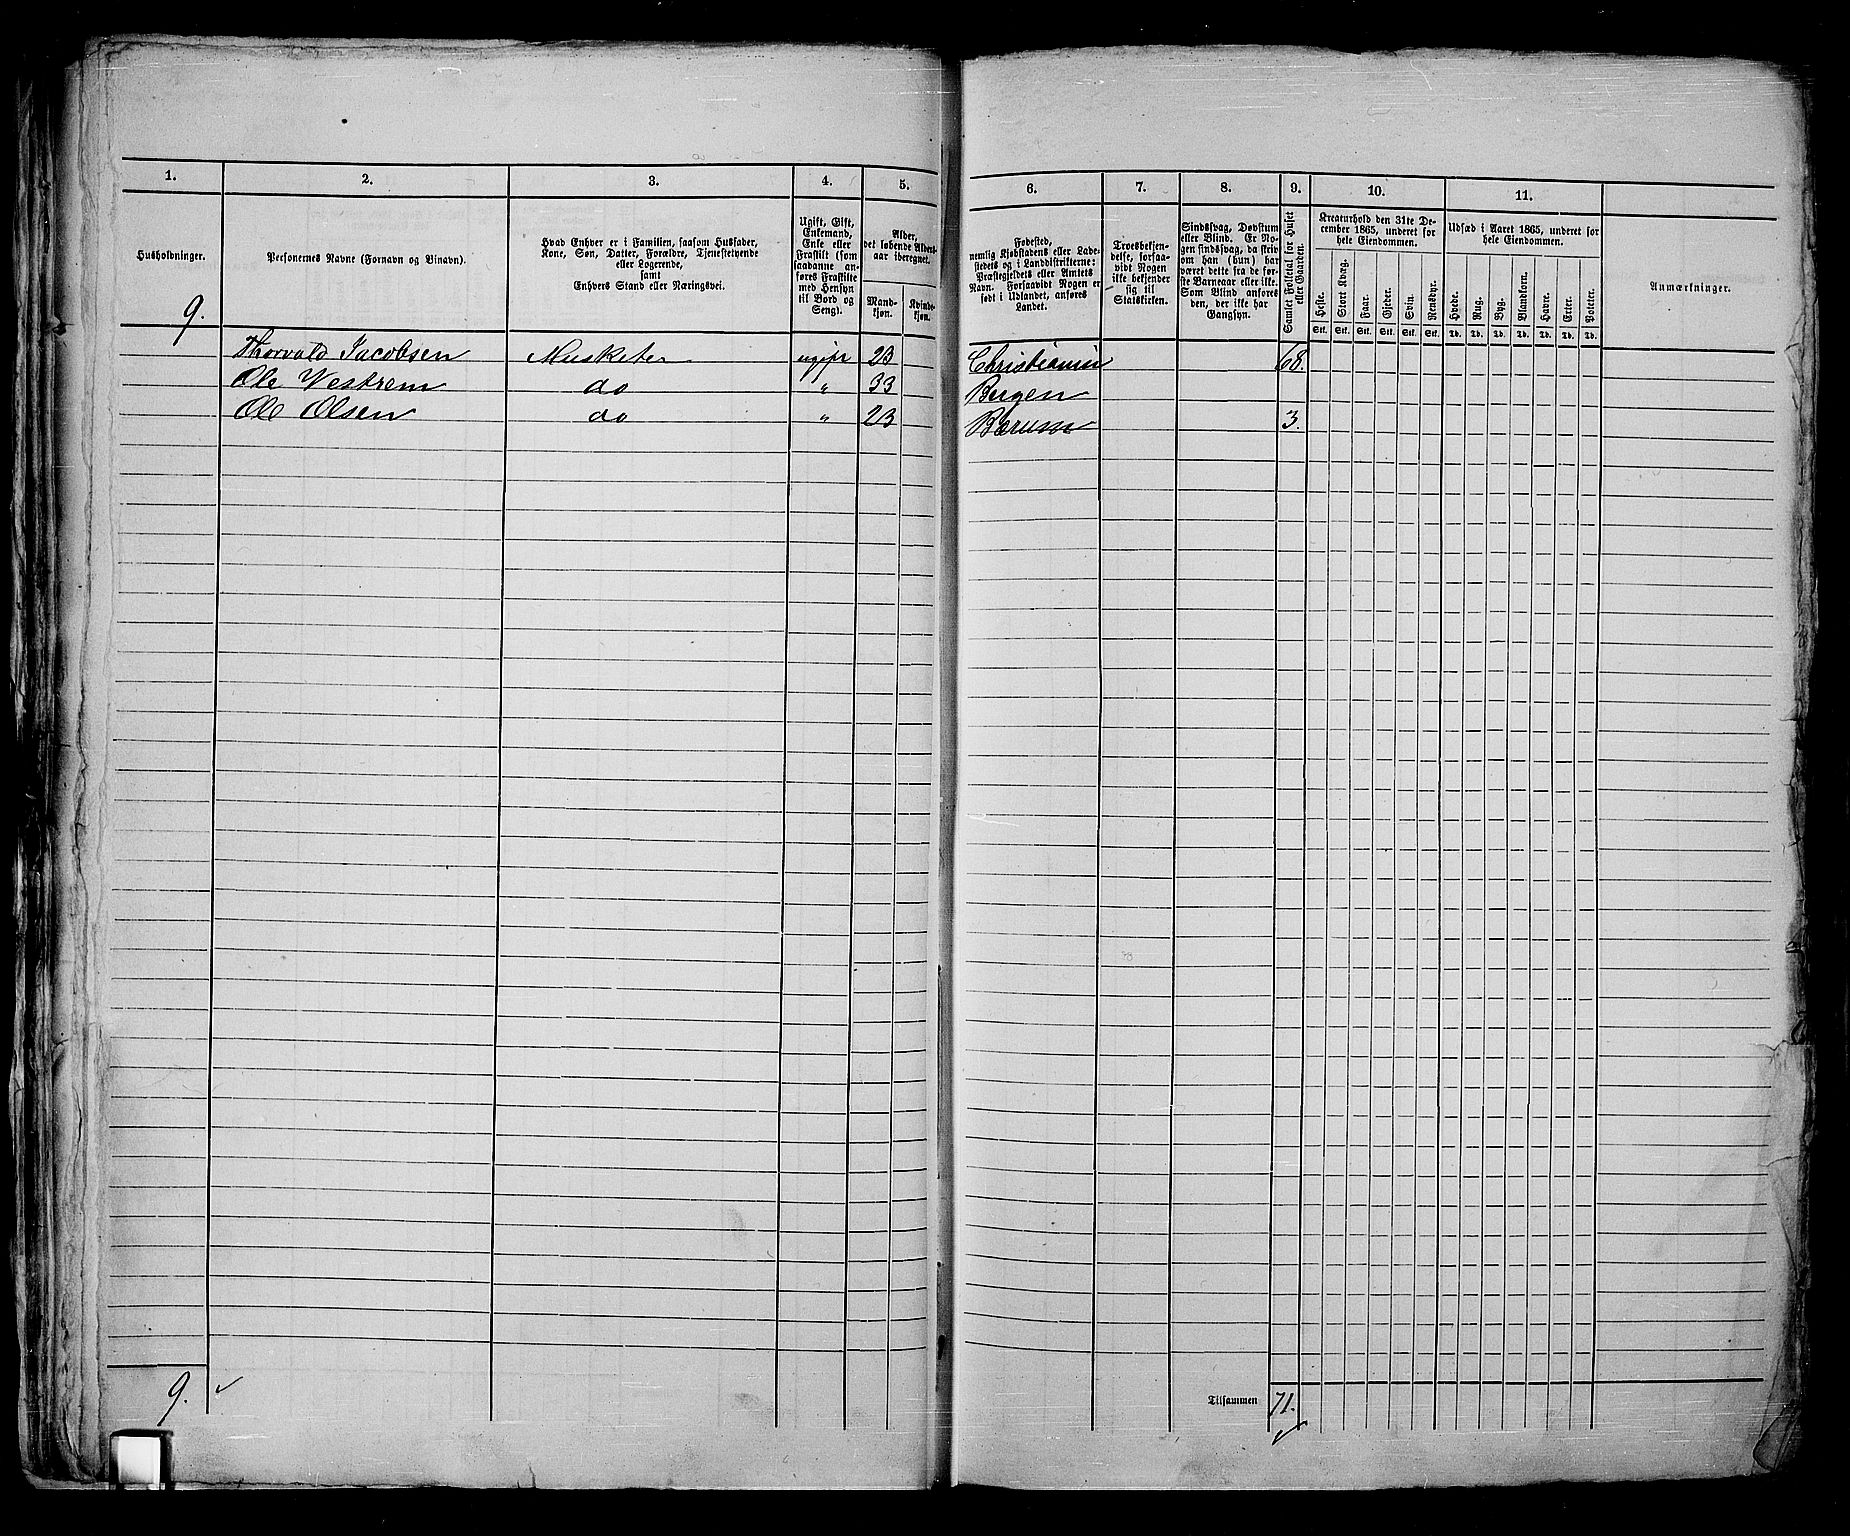 1. 2. 3. 4. 5. 6. 7. 8. 9. 10. 11.
Husholdninger.
Personernes Navne (Fornavn og Tilnavn).
Hvad Enhver er i Familien, saasom Husfader,
Kone, Søn, Datter, Forældre, Tjenestetyende
eller Logerende,
samt
Enhvers Stand eller Næringsvei.
Ugift, Gift,
Enkemand,
Enke eller
Fraskilt (som
saadanne an-
føres Fraskilte
med Hensyn
til Bord og
Seng).
Alder,
det løbende Alders-
aar iberegnet.
Mand-
kjøn.
Kvinde-
kjøn.
Fødested,
nemlig Kjøbstadens eller Lade-
stedets og i Landdistrikterne:
Præstegjeldets eller Amtets
Navn. Forsaavidt Nogen er
født i Udlandet, anføres
Landet.
Troesbekjen-
delse, forsaa-
vidt Nogen
ikke bekjender
sig til
Statskirken.
Sindssvag, Døvstum
eller Blind. Er No-
gen sindssvag, da skriv
om han (hun) har
været dette fra de før-
ste Barneaar eller ikke.
Som Blind anføres
den, der ikke har
Gangsyn.
Samlet Folketal for Huset
eller Gaarden.
Kreaturhold den 31te De-
cember 1865, underet for
hele Eiendommen.
Heste. Stort Kvæg. Faar. Gjeder. Svin. Rensdyr.
Stk. Stk. Stk. Stk. Stk. Stk.
Udsæd i Aaret 1865, underet for
hele Eiendommen.
Hvede. Rug. Byg. Blandkorn. Havre. Erter. Poteter.
Td. Td. Td. Td. Td. Td. Td.
Anmærkninger.
9.
Thorvald Jacobsen Musketer ugift 23 Christiania 68.
Ole Westrem do " 33 Bergen
Ole Olsen do " 23 Bærum 3.
9. ✓
Tilsammen 71. ✓